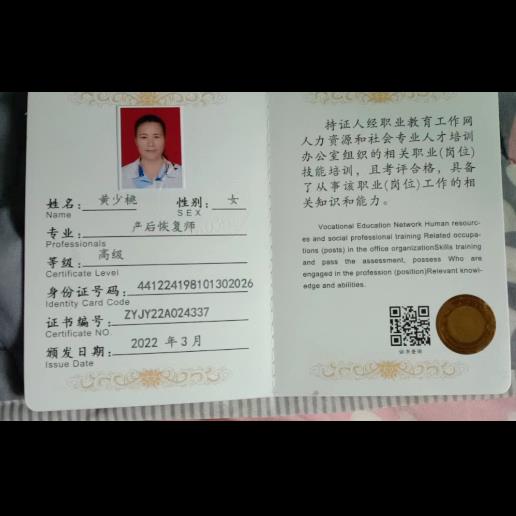 姓名: 黄少桃 性别: 女
Name SEX
专业: 产后恢复师
Professionals
等级: 高级
Certificate Level
身份证号码: 441224198101302026
Identity Card Code
证书编号: ZYJY22A024337
Certificate NO.
颁发日期: 2022 年 3 月
Issue Date
持证人经职业教育工作网
人力资源和社会专业人才培训
办公室组织的相关职业(岗位)
技能培训,且考评合格,具备
了从事该职业(岗位)工作的相
关知识和能力。
Vocational Education Network Human resourc-
es and social professional training Related occupa-
tions (posts) in the office organizationSkills training
and pass the assessment, possess Who are
engaged in the profession (position)Relevant knowl-
edge and abilities.
证书查询